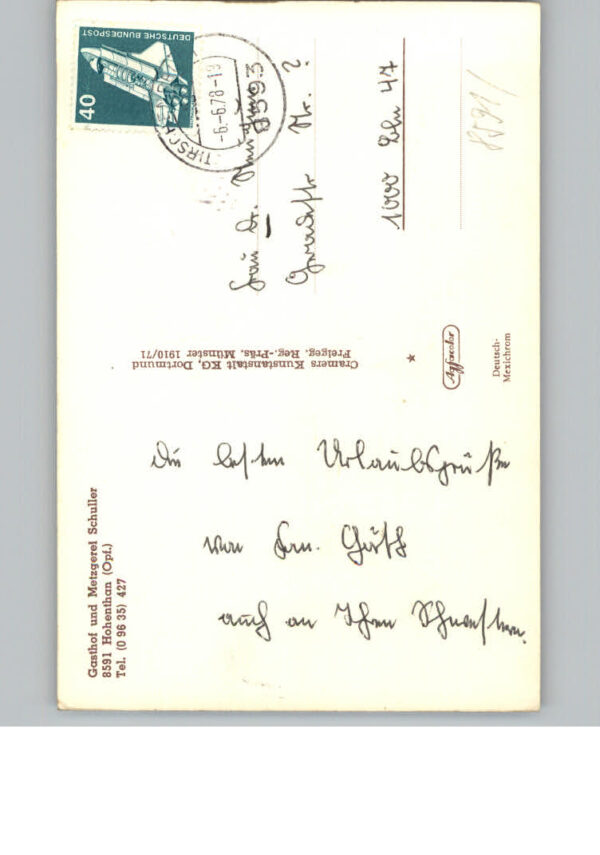 Gasthof und Metzgerei Schuller
8591 Hohenthan (Opf.)
Tel. (0 96 35) 427
Die besten Urlaubsgrüße
von Fam.
auch an Ihre Schwestern.
Cramers Kunstanstalt KG, Dortmund
Freigeg. Reg.-Präs. Münster 1910/71
Agfacolor
Deutsch-
Mexichrom
DEUTSCHE BUNDESPOST
40
-6.-6.78-18
8593
TIRSCH
Frau Dr.
Nr. ?
1000 Bln 47
8591